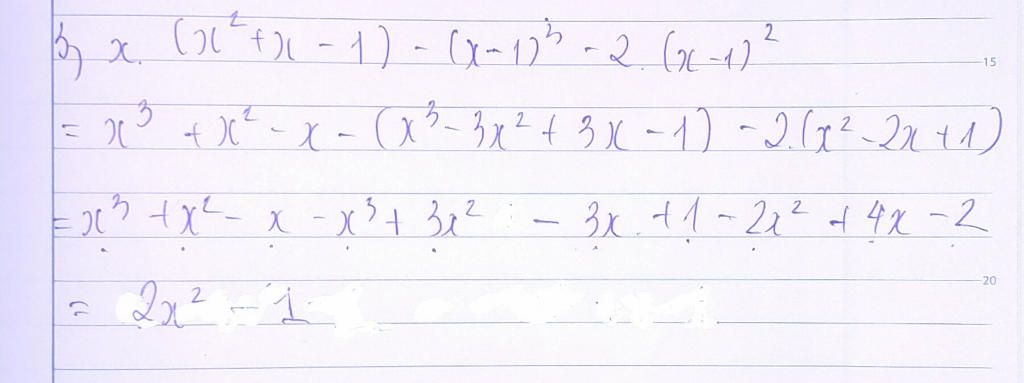 b, x. (x² + x - 1) - (x - 1)³ - 2. (x - 1)²
15
= x³ + x² - x - (x³ - 3x² + 3x - 1) - 2.(x² - 2x + 1)
= x³ + x² - x - x³ + 3x² - 3x + 1 - 2x² + 4x - 2
20
= 2x² - 1